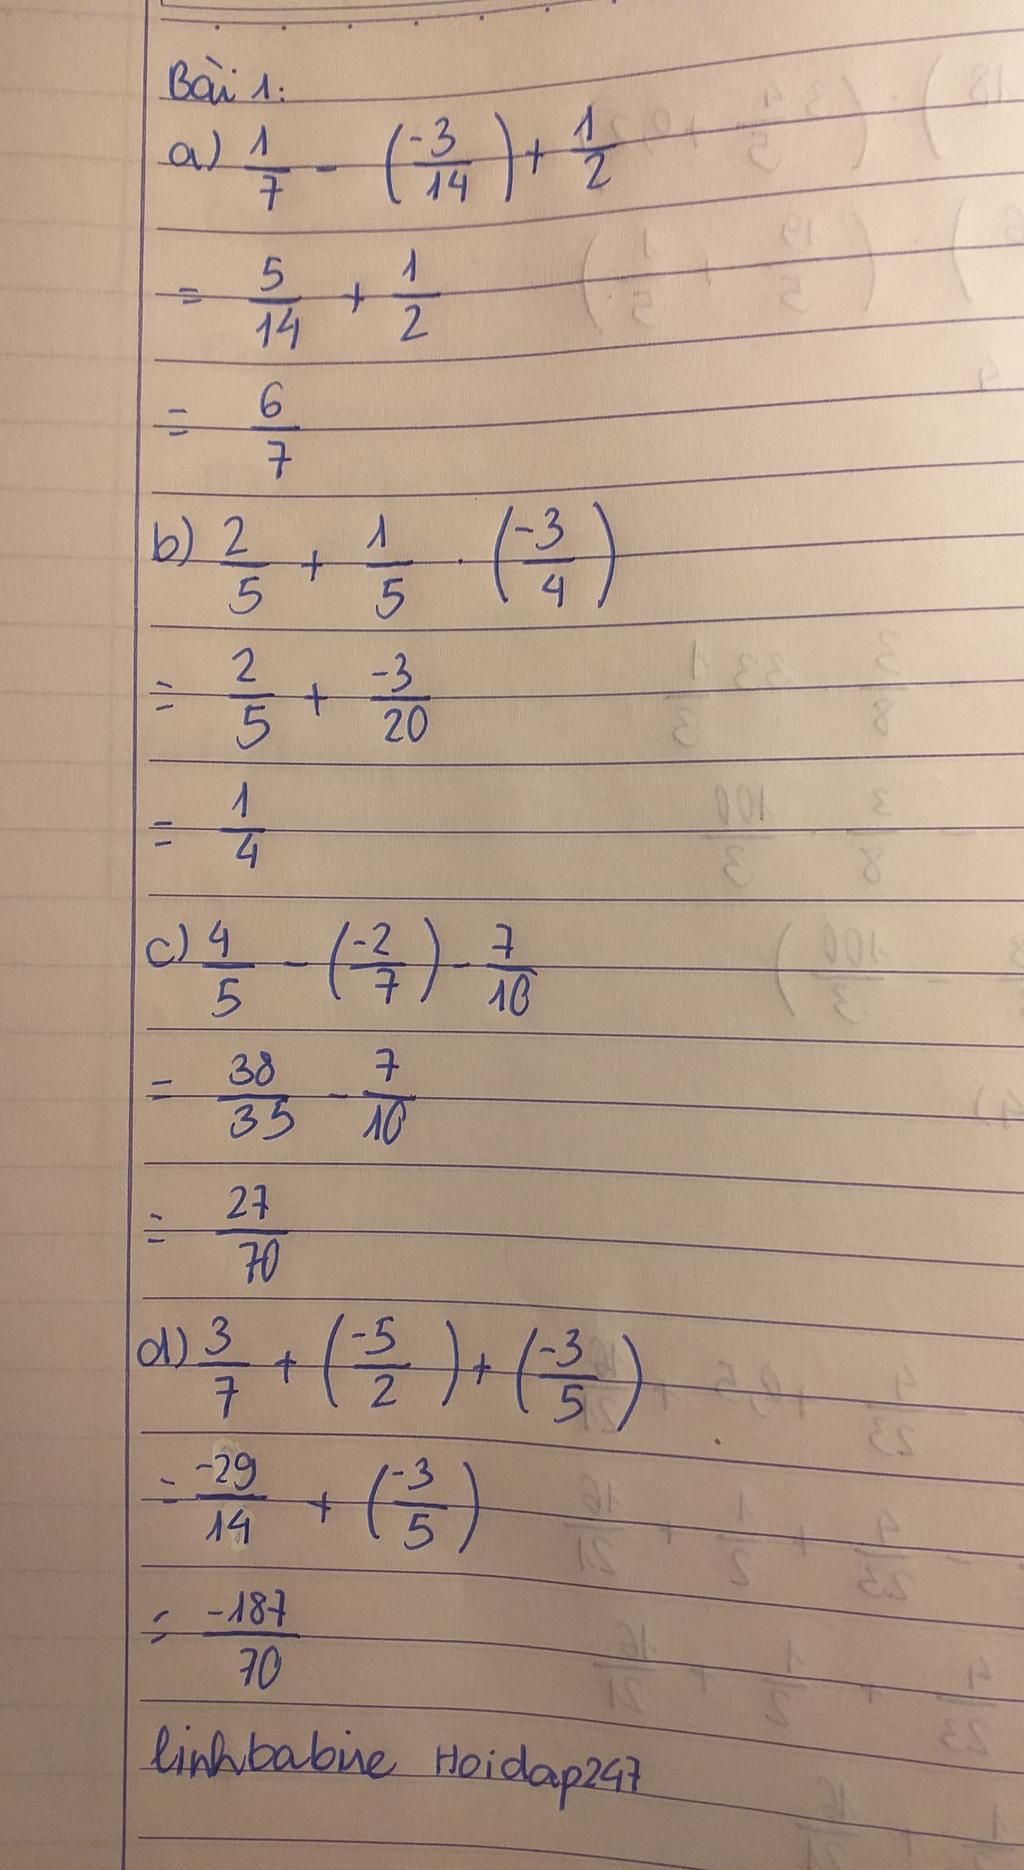 Bài 1:
a) 1/7 - (-3/14) + 1/2
= 5/14 + 1/2
= 6/7
b) 2/5 + 1/5 . (-3/4)
= 2/5 + -3/20
= 1/4
c) 4/5 - (-2/7) - 7/10
= 38/35 - 7/10
= 27/70
d) 3/7 + (-5/2) + (-3/5)
= -29/14 + (-3/5)
= -187/70
linhbabine Hoidap247